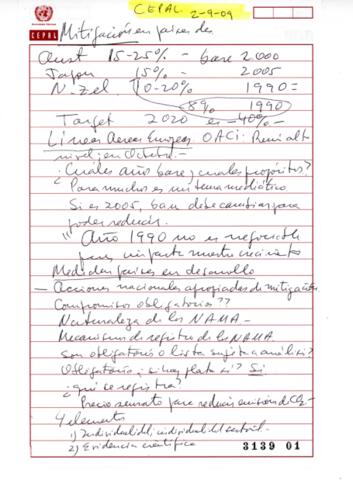 CEPAL 2-9-09
CEPAL
Mitigación en países des
Aust 15-25% - base 2000
Japon 15% - 2005
N. Zel. 10-20% 1990=
8% 1990
Target 2020 es -40%-
Líneas Aereas Europeas OACI: Reuni alto
nivel; en Octubre-
¿Cuáles año base y cuales propósitos?
Para muchos es un tema mediático
Si es 2005, base debe cambiar para
poder reducir.
"Año 1990 no es negociable
pues
Medidas países en desarrollo
- Acciones nacionales apropiadas de mitigación
Compromisos obligatorios??
Naturaleza de los NAMA-
Mecanismo de registro de los NAMA
son obligatorio o lista sujeta a análisis?
Obligatorio, si hay plata sí? Si
¿qué se registra?
Precio para reducir emisión de CO2-
4 elementos
1)
2) Evidencia científica
3139 01